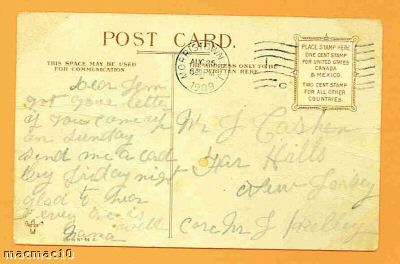 POST CARD.
THIS SPACE MAY BE USED
FOR COMMUNICATION
THE ADDRESS ONLY TO BE
WRITTEN HERE.
MORRISTOWN
AUG 25
1909
PLACE STAMP HERE
ONE CENT STAMP
FOR UNITED STATES
CANADA
& MEXICO.
TWO CENT STAMP
FOR ALL OTHER
COUNTRIES.
Dear
got your letter
if you come up
on Sunday
send me a card
by Friday night
glad to hear
every one is
well
Mr J
Far Hills
New Jersey
Care Mr J
macmac10